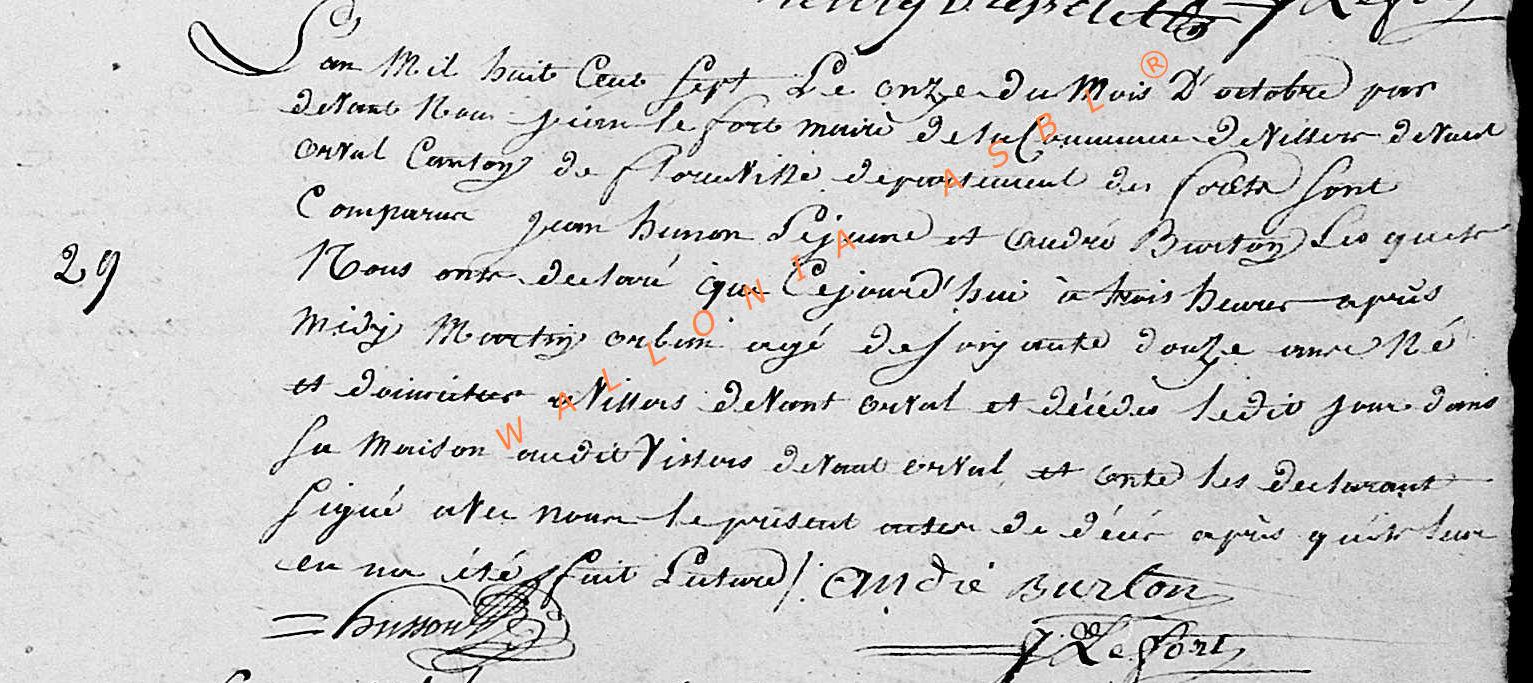 henry
J Lefort
L'an Mil huit Cent Sept Le onze du Mois D'octobre par
devant Nous jean le fort maire de la Commune de Villers devant
orval Canton de florenville departement des forêts sont
Comparus jean husson Lejeune et andré Burton Les quels
29
Nous onts declaré que Cejourd'hui à trois heures après
midy Martin orban agé de soixante douze ans Né
et domicilier a Villers devant orval et décédés ledit jour dans
sa maison audit Villers devant orval et onts les declarant
signé avec nous le présent acter de décés après qu'ils leur
en na été fait Lecture /. andré Burton
husson
J Lefort
WALLONIA ASBL ®